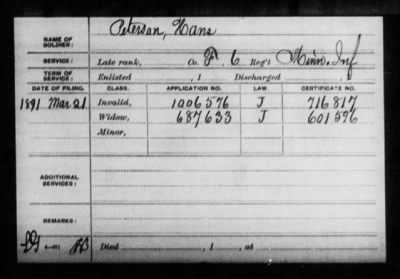 Peterson, Hans
NAME OF SOLDIER:
SERVICE: Late rank, Co. F, 6 Reg't Minn. Inf
TERM OF SERVICE: Enlisted , 1 Discharged , 1
DATE OF FILING. CLASS. APPLICATION NO. LAW. CERTIFICATE NO.
1891 Mar 21 Invalid, 1006576 J 716817
Widow, 687633 J 601596
Minor,
ADDITIONAL SERVICES:
REMARKS:
Died , 1 , at